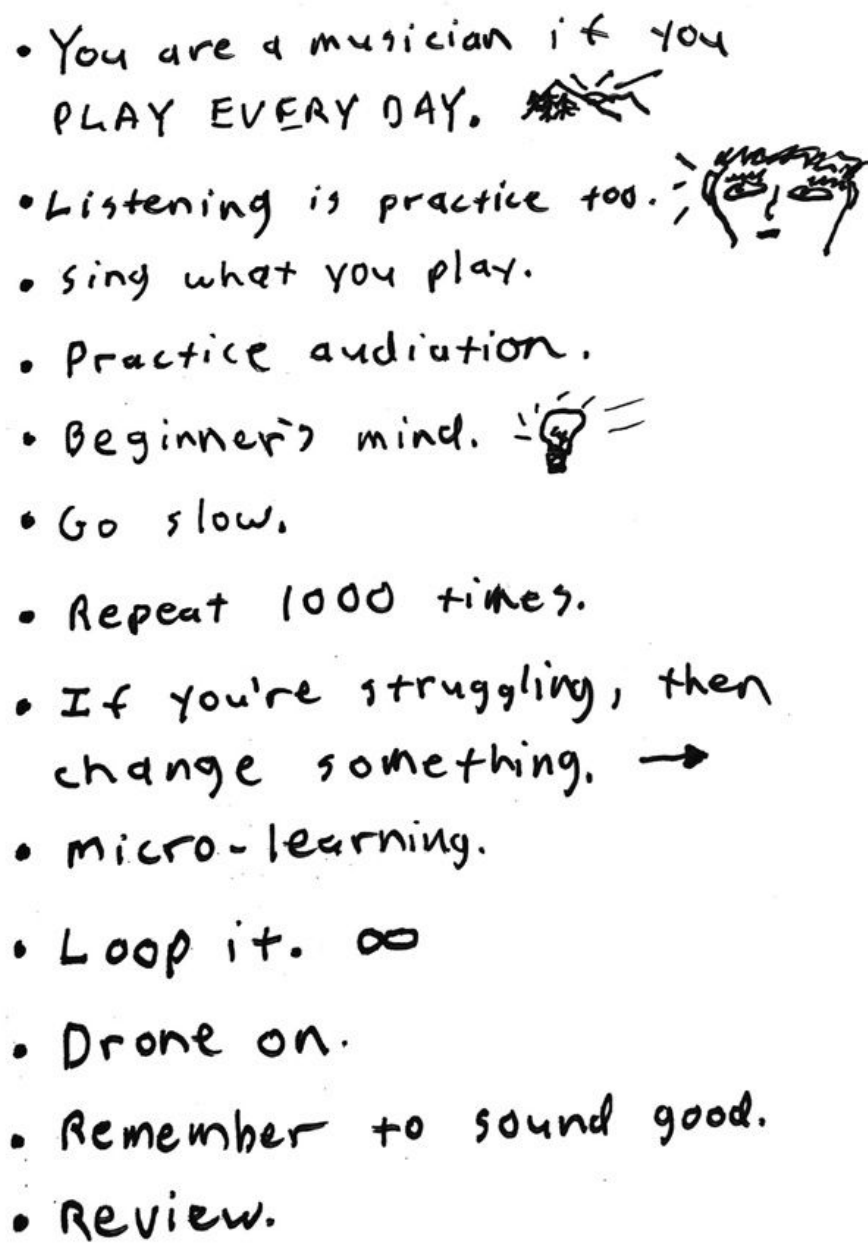 • You are a musician if you
PLAY EVERY DAY.
• Listening is practice too.
• sing what you play.
• Practice audiation.
• Beginner's mind.
• Go slow.
• Repeat 1000 times.
• If you're struggling, then
change something. →
• micro-learning.
• Loop it. ∞
• Drone on.
• Remember to sound good.
• Review.